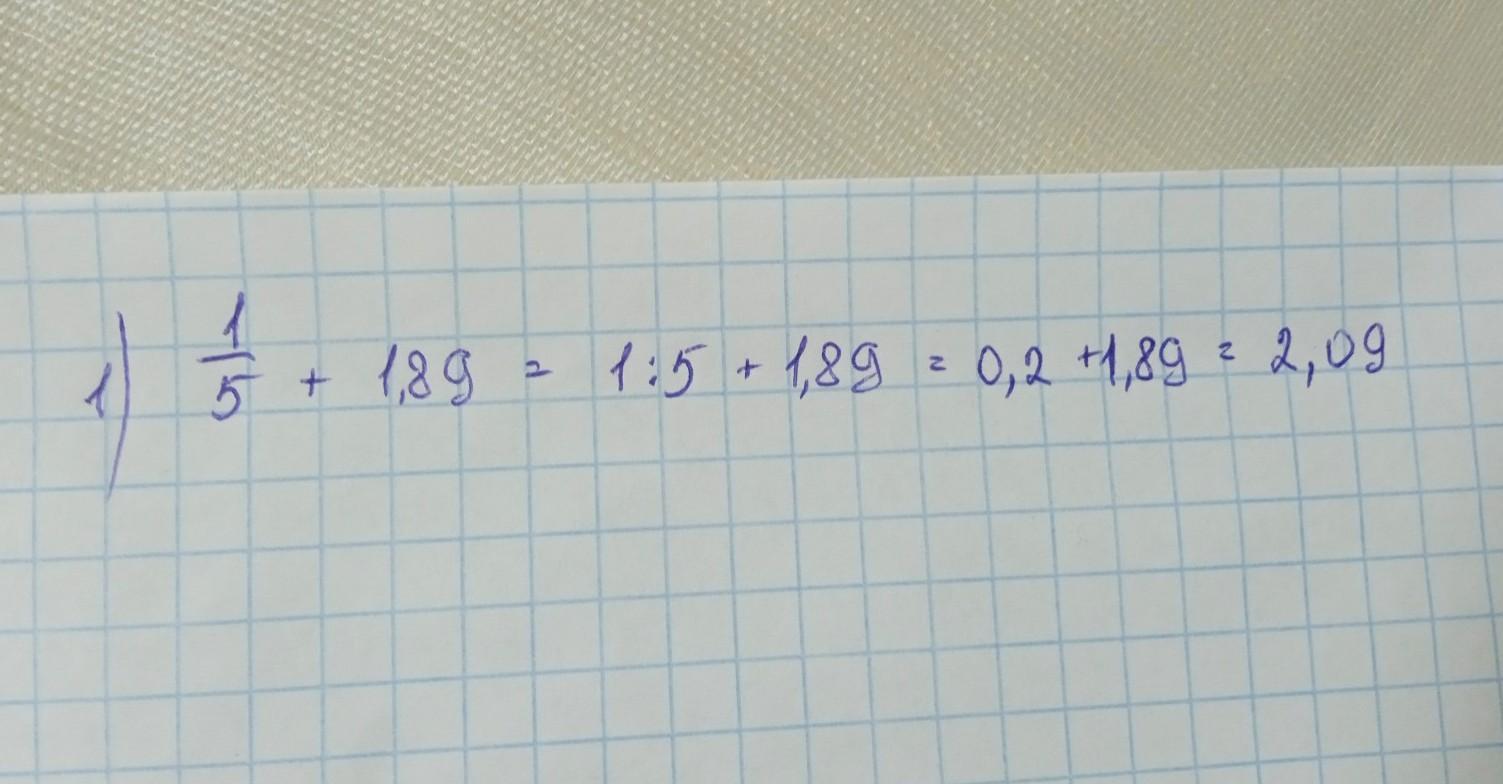 1) 1/5 + 1,89 = 1:5 + 1,89 = 0,2 +1,89 = 2,09